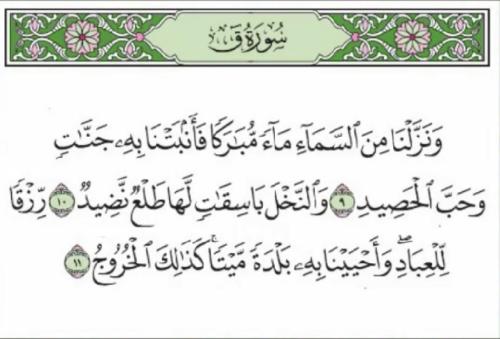 سُورَةُ قٓ
وَنَزَّلْنَا مِنَ ٱلسَّمَآءِ مَآءً مُّبَٰرَكًا فَأَنۢبَتْنَا بِهِۦ جَنَّٰتٍ
وَحَبَّ ٱلْحَصِيدِ ٩ وَٱلنَّخْلَ بَاسِقَٰتٍ لَّهَا طَلْعٌ نَّضِيدٌ ١٠ رِّزْقًا
لِّلْعِبَادِ ۖ وَأَحْيَيْنَا بِهِۦ بَلْدَةً مَّيْتًا ۚ كَذَٰلِكَ ٱلْخُرُوجُ ١١